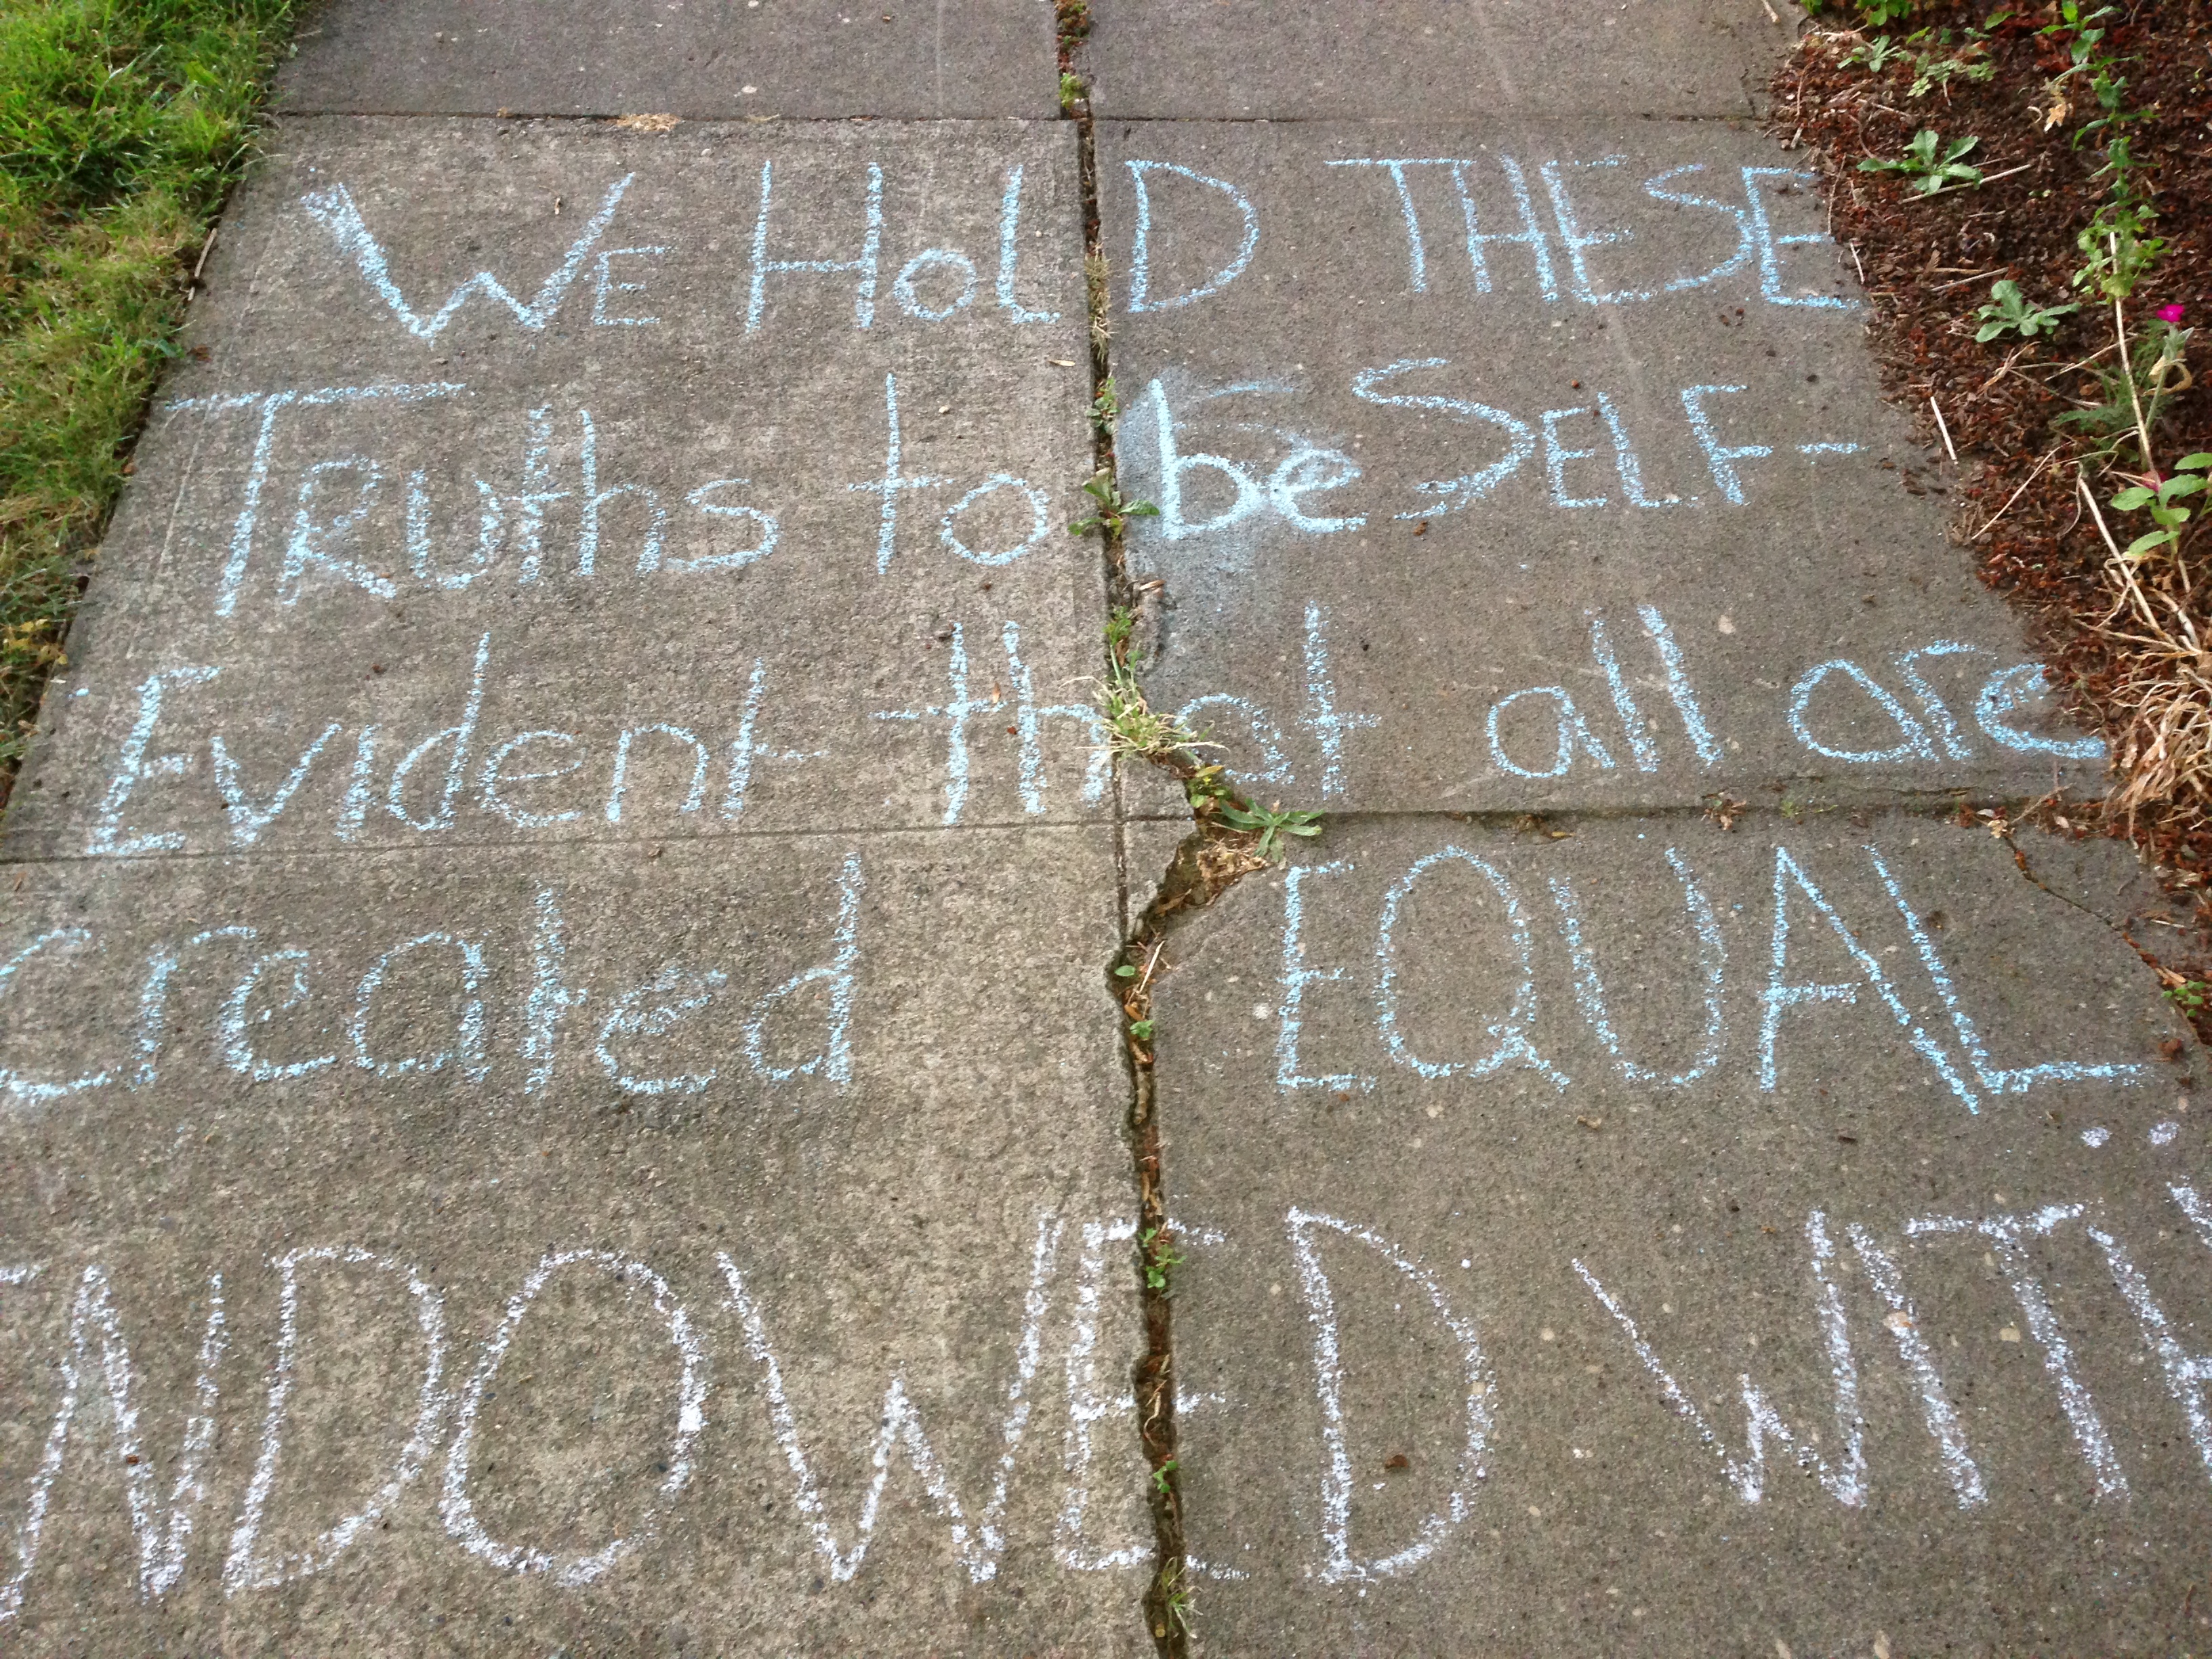 We HolD THESE
Truths to be SELF-
Evident that all are
created EQUAL
ENDOWED WITH